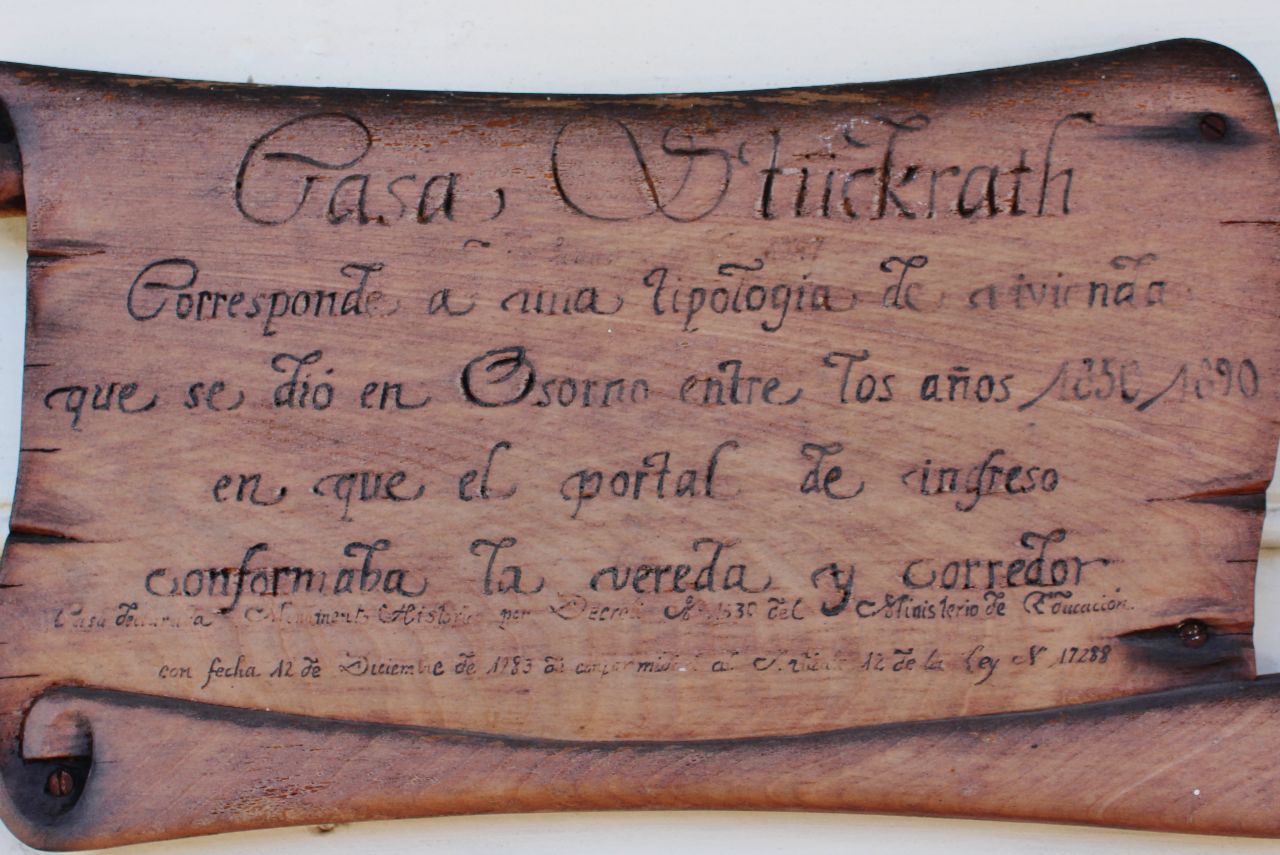 Casa Stückrath
Corresponde a una tipología de vivienda
que se dió en Osorno entre los años 1850/1890
en que el portal de ingreso
conformaba la vereda y corredor
Casa declarada Monumento Histórico por Decreto Nº 1630 del Ministerio de Educación.
con fecha 12 de Diciembre de 1983 de conformidad al Artículo 12 de la Ley Nº 17288